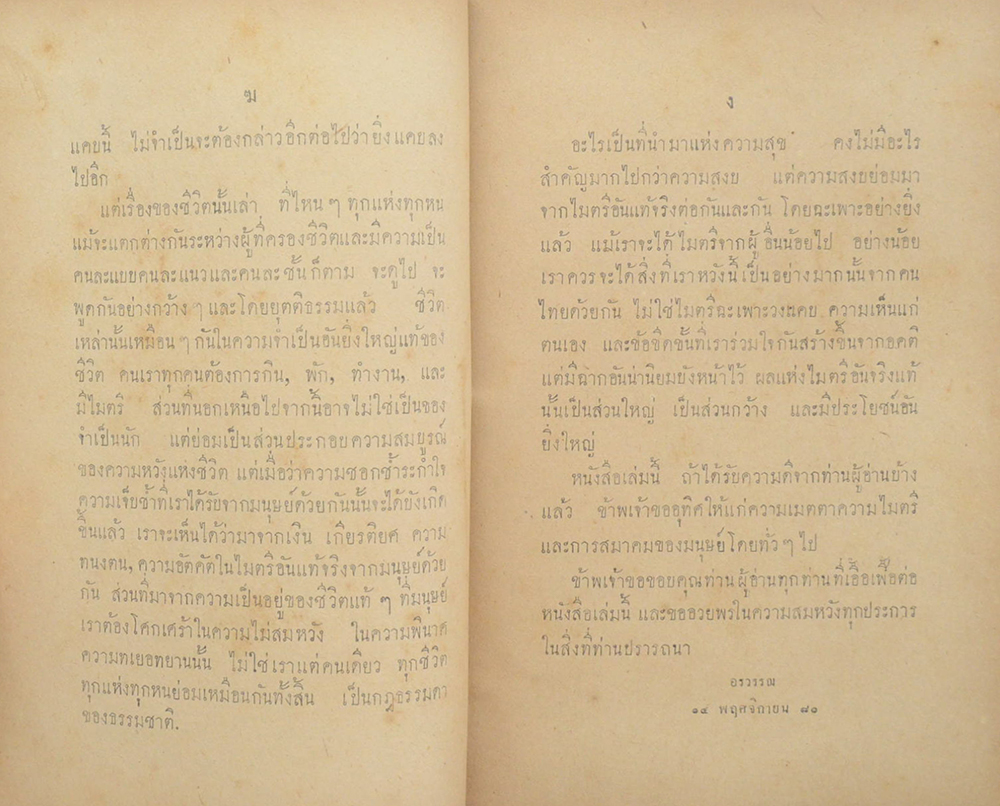 ฆ
แคบนี้ ไม่จำเป็นจะต้องกล่าวอีกต่อไปว่ายิ่งแคบลง
ไปอีก
แต่เรื่องของชีวิตนั้นเล่า ที่ไหน ๆ ทุกแห่งทุกหน
แม้จะแตกต่างกันระหว่างผู้ที่ครองชีวิตและมีความเป็น
คนละแบบคนละแนวและคนละชั้นก็ตาม จะดูไป จะ
พูดกันอย่างกว้าง ๆ และโดยยุตติธรรมแล้ว ชีวิต
เหล่านั้นเหมือน ๆ กันในความจำเป็นอันยิ่งใหญ่แท้ของ
ชีวิต คนเราทุกคนต้องการกิน, พัก, ทำงาน, และ
มีไมตรี ส่วนที่นอกเหนือไปจากนี้อาจไม่ใช่เป็นของ
จำเป็นนัก แต่ย่อมเป็นส่วนประกอบความสมบูรณ์
ของความหวังแห่งชีวิต แต่เมื่อว่าความชอกช้ำระกำใจ
ความเจ็บช้ำที่เราได้รับจากมนุษย์ด้วยกันนั้นจะได้บังเกิด
ขึ้นแล้ว เราจะเห็นได้ว่ามาจากเงิน เกียรติยศ ความ
ทนงตน, ความอัตคัตในไมตรีอันแท้จริงจากมนุษย์ด้วย
กัน ส่วนที่มาจากความเป็นอยู่ของชีวิตแท้ ๆ ที่มนุษย์
เราต้องโศกเศร้าในความไม่สมหวัง ในความพินาศ
ความทเยอทยานนั้น ไม่ใช่เราแต่คนเดียว ทุกชีวิต
ทุกแห่งทุกหนย่อมเหมือนกันทั้งสิ้น เป็นกฎธรรมดา
ของธรรมชาติ.
ง
อะไรเป็นที่นำมาแห่งความสุข คงไม่มีอะไร
สำคัญมากไปกว่าความสงบ แต่ความสงบย่อมมา
จากไมตรีอันแท้จริงต่อกันและกัน โดยฉะเพาะอย่างยิ่ง
แล้ว แม้เราจะได้ไมตรีจากผู้อื่นน้อยไป อย่างน้อย
เราควรจะได้สิ่งที่เราหวังนี้เป็นอย่างมากนั้นจากคน
ไทยด้วยกัน ไม่ใช่ไมตรีฉะเพาะวงแคบ ความเห็นแก่
ตนเอง และข้อขีดขั้นที่เราร่วมใจกันสร้างขึ้นจากอคติ
แต่มีฉากอันน่านิยมบังหน้าไว้ ผลแห่งไมตรีอันจริงแท้
นั้นเป็นส่วนใหญ่ เป็นส่วนกว้าง และมีประโยชน์อัน
ยิ่งใหญ่
หนังสือเล่มนี้ ถ้าได้รับความดีจากท่านผู้อ่านบ้าง
แล้ว ข้าพเจ้าขออุทิศให้แก่ความเมตตาความไมตรี
และการสมาคมของมนุษย์โดยทั่ว ๆ ไป
ข้าพเจ้าขอขอบคุณท่านผู้อ่านทุกท่านที่เอื้อเฟื้อต่อ
หนังสือเล่มนี้ และขออวยพรในความสมหวังทุกประการ
ในสิ่งที่ท่านปรารถนา
อรวรรณ
๑๔ พฤศจิกายน ๘๑